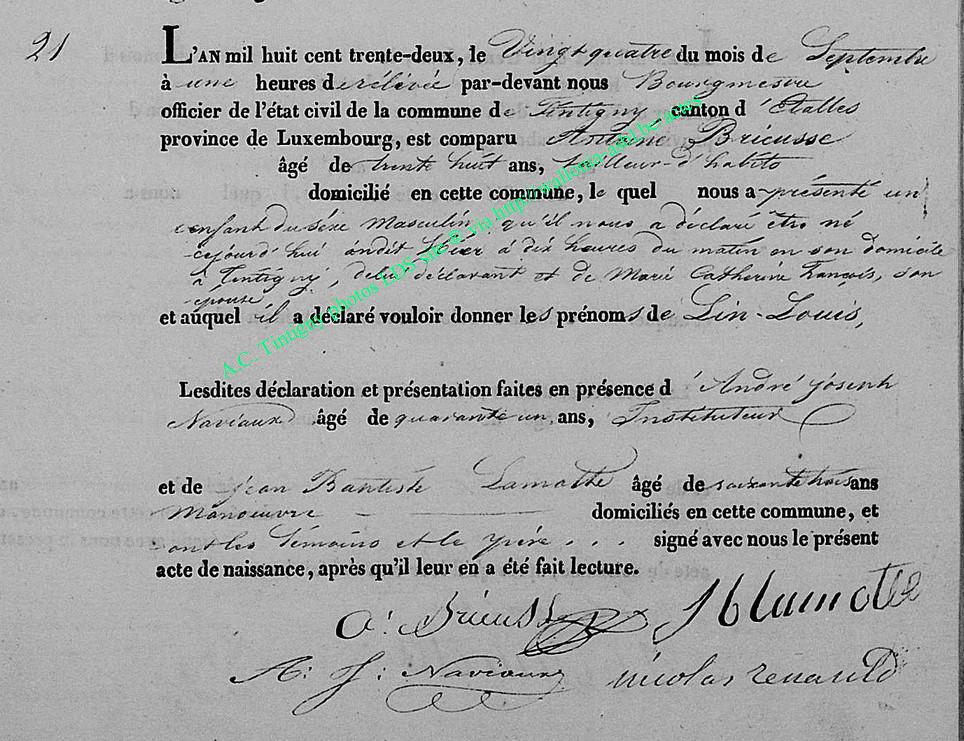 21
L'AN mil huit cent trente-deux, le Vingt quatre du mois de Septembre
à une heures de rélévée par-devant nous Bourgmestre
officier de l'état civil de la commune de Tintigny, canton d'Etalles
province de Luxembourg, est comparu Antoine Bricusse
âgé de trente huit ans, tailleur d'habits
domicilié en cette commune, le quel nous a présenté un
enfant du séxe Masculin, qu'il nous a déclaré être né
cejourd'hui à dix heures du matin en son domicile
à Tintigny, de lui déclarant et de Marie Catherine François, son
épouse
et auquel il a déclaré vouloir donner les prénoms de Lin-Louis,
Lesdites déclaration et présentation faites en présence d'André joseph
Naviaux âgé de quarante un ans, Instituteur
et de jean Baptiste Lamotte âgé de soixante trois ans
Manoeuvre domiciliés en cette commune, et
ont les témoins et le père... signé avec nous le présent
acte de naissance, après qu'il leur en a été fait lecture.
A: Bricusse JB Lamotte
A: J: Naviaux nicolas renauld
A.C. Tintigny photos LDS site© via http://wallonia-asbl.be/actes